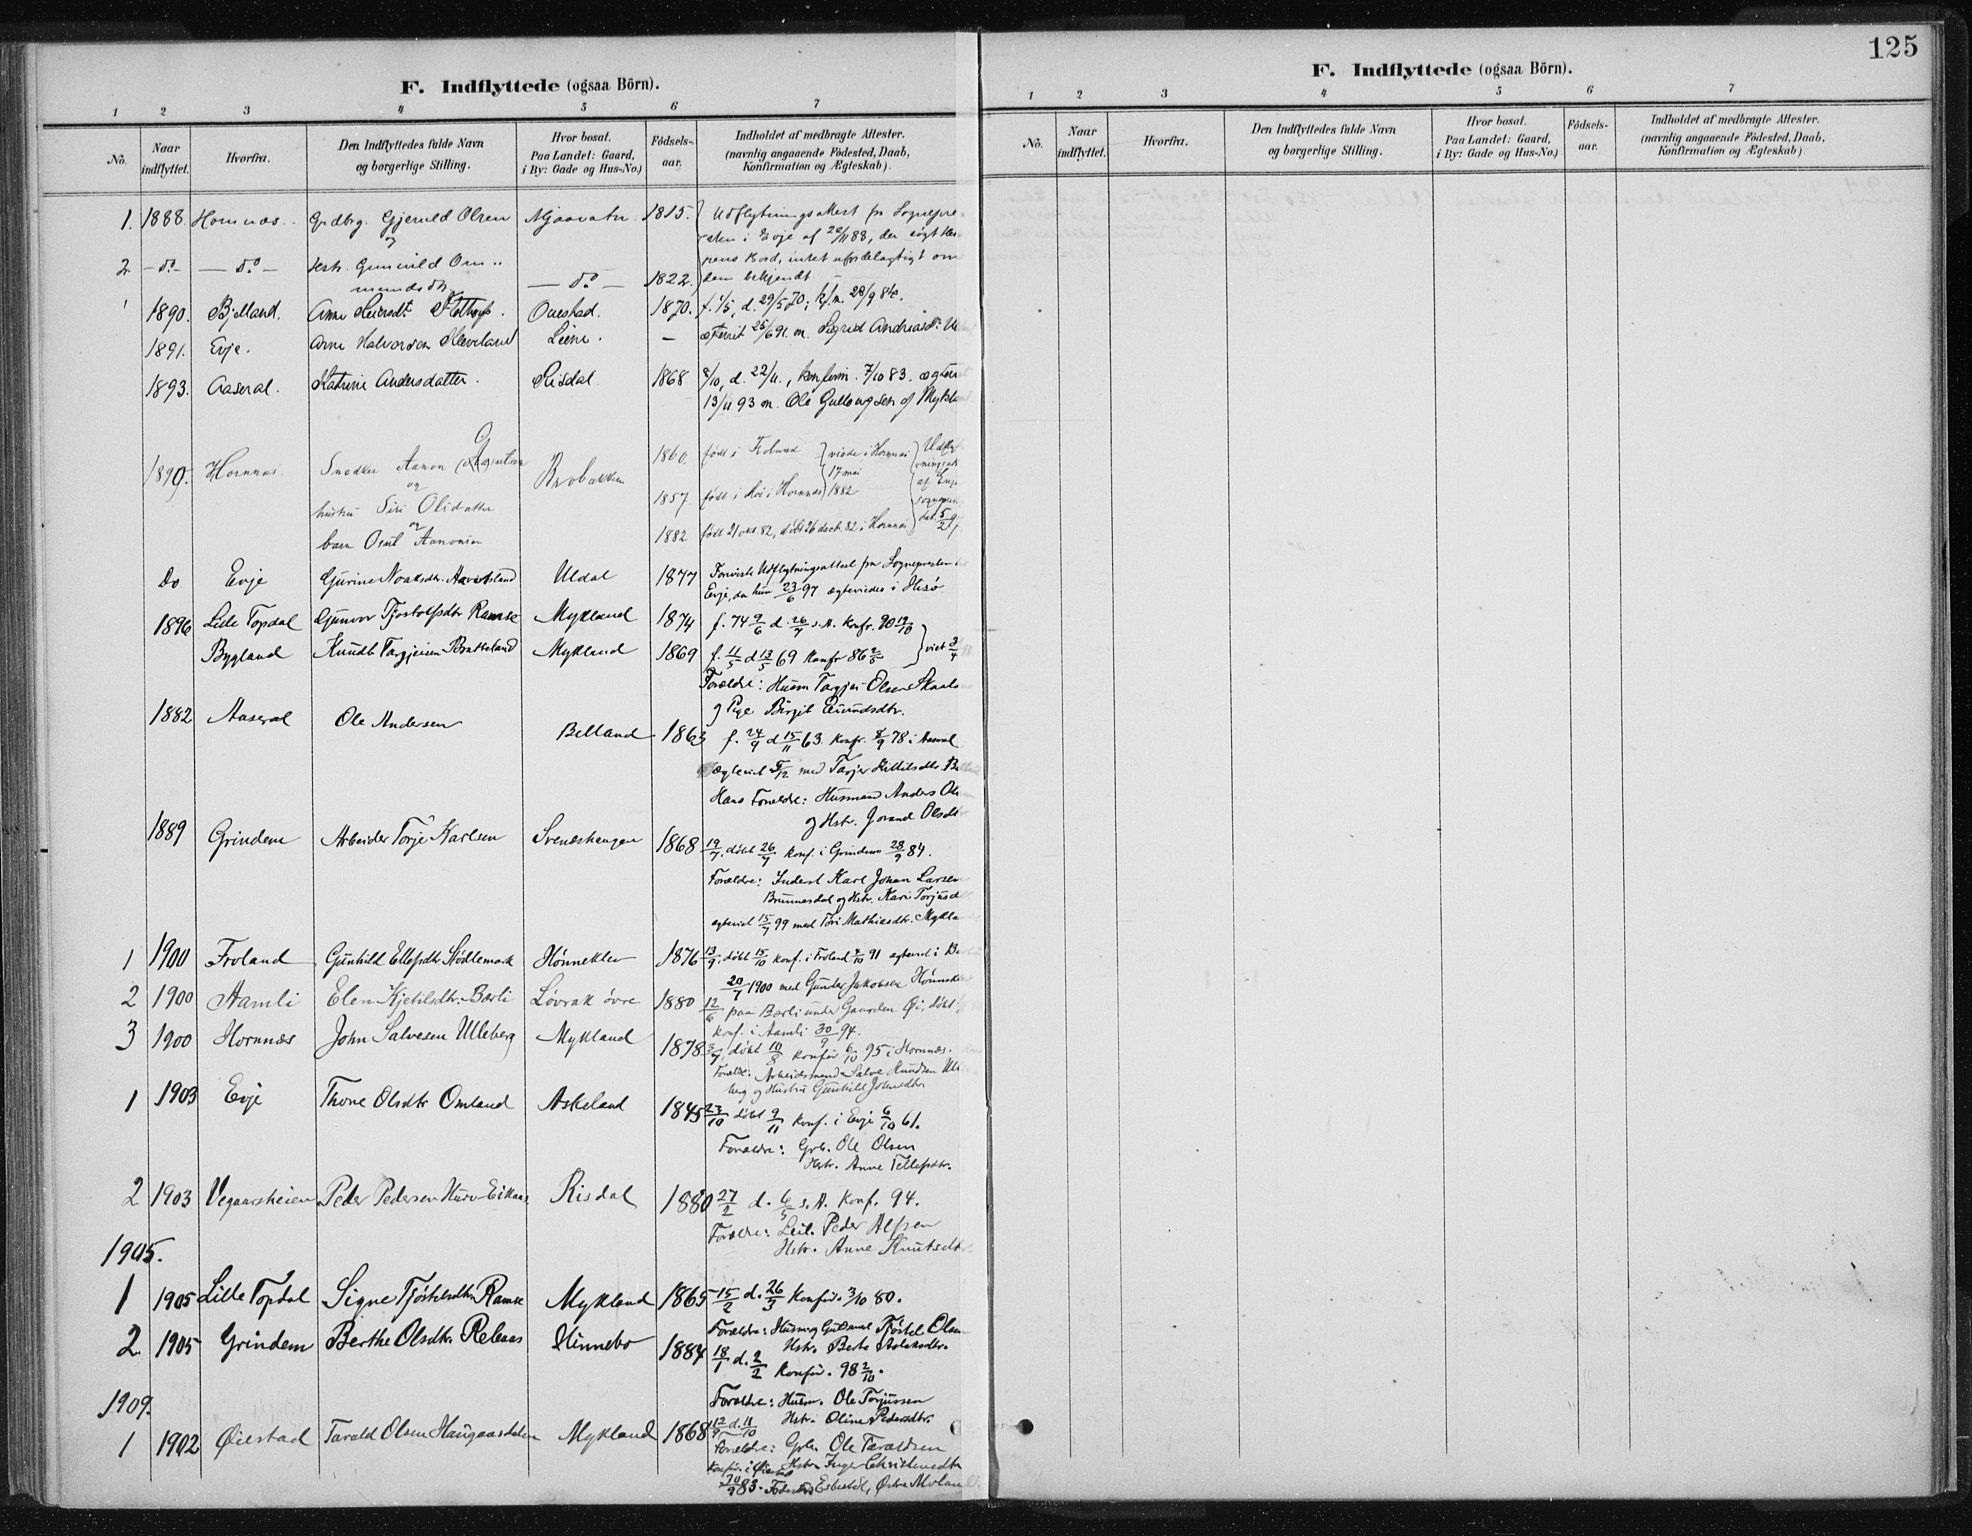 125
F. Indflyttede (ogsaa Börn).
1 2 3 4 5 6 7
No. Naar indflyttet. Hvorfra. Den Indflyttedes fulde Navn og borgerlige Stilling. Hvor bosat. Paa Landet: Gaard, i By: Gade og Hus-No.) Födsels-aar. Indholdet af medbragte Attester. (navnlig angaaende Födested, Daab, Konfirmation og Ægteskab).
1. 1888. Hornnæs. Grdbrg. Gjeruld Olsen Mjaavatn. 1815. Udflytningsattest fra Sognepre-
sten i Evje af 20/11 88, der søgt Her-
2. - do - - do - Hstr. Gunnild Om.. - do - 1822. rens Bord, intet ufordelagtigt om
mundsdtr. dem bekjendt
1890. Bjelland. Anne Ouestad. 1870. f. 1/5, d. 29/5 70; kfm. 28/9 84.
1891. Evje. Arne Halvorsen Kleveland Liene. - ægteviet 25/6 91. m. Sigrid Andreasdr.
1893. Aaseral. Katrine Andersdatter. Risdal. 1868 8/10, d. 22/11., konfirm. 7/10 83.
13/11 93 m. Ole Gullengsen af Mykla
Hornnæs Snedker Aanon Brobakken 1860. født i Froland viede i Hornnæs
og 17 mai
hustru Siri Olsdatter 1857. født i Hornnæs 1882
og
barn Osul Aanonsen 1882 født 21 okt. 82, døbt 26 decb. 82 i Hornnæs
Do Evje Gurine Noaksdtr. Uldal 1877 Forevist Udflytningsattest fra Sognepresten
Evje, da hun 23/6 97 ægteviedes i Hisø
1896 Lille Topdal Gunvor Tjostolfsdtr Ramse Mykland 1874 f. 74 9/6 d. 26/7 s.A. Konfr. 90
Bygland Knudt Targjeisen Bratteland Mykland 1869 f. 11/5 d 13/5 69 Konfr 86 viet
Forældre: Husm Targjei Olsen
og Pige Birgit
1882 Aaseral Ole Andersen Belland 1863 f. 24/9 d 15/11 63. Konfr. 8/9 78 i Aaseral
ægteviet med Tarjer Kittilsdtr.
Hans Forældre: Husmand Anders
og Hstr. Jorand Olsdtr
1889 Grindem Arbeider Torje Karlsen Svenskhaugen 1868 19/7, døbt 26/7 Konf. i Grindem 28/9 84.
Forældre: Inderst Karl Johan Larsen
Brunnesdal og Hstr. Kari Torjusd
ægteviet 15/7 99 med Tori Mathiasdtr. Mykla
1 1900 Froland Gunhild Ellefsdtr Hønneklev 1876 13/9, døbt 15/10 Konf. i Froland 4/10 91
20/7 1900 med Gunder Jakobsen
2 1900 Aamli Elen Kjetilsdtr. Bærli Løvrak övre 1880 12/6 paa Bærli under Gaarden Øi, døbt
konf. i Aamli 30/9 94.
3 1900 Hornnæs John Salvesen Ulleberg Mykland 1878 3/7, døbt 10/8 konfir 6/10 95 i Hornnæs.
Forældr: Arbeidsmand Salve Knudsen Ulle
berg og Hustru Gunhild Johnsdtr
1 1903 Evje Thone Olsdtr Omland Askeland 1845 23/10 døbt 9/11 Konf. i Evje 6/10 61.
Forældre: Grb. Ole Olsen
Hstr. Anne Tellefsdtr.
2 1903 Vegaarsheien Peder Pedersen Risdal 1880 27/2 d. 6/5 s.A. Konf. 94.
Forældre: Leil. Peder Alfsen
Hstr. Anne Knutsdtr.
1905.
1 1905 Lille Topdal Signe Tjöstelsdtr Ramse Mykland 1865 15/2 d. 26/3 Konfir. 3/10 80.
Forældre: Tjöstel Olsen
Hstr. Berte Aslaksdtr.
2 1905 Grindem Berthe Olsdtr. Releaas Hinnebo 1884 18/1 d. 2/2 Konfir. 98 2/10.
Forældre: Husm. Ole Torjussen
Hstr. Oline Pedersdtr.
1909.
1 1902 Øiestad Tarald Olsen Haugaasdalen Mykland 1868 12/9 d. 11/10
Forældre: Grb. Ole Taraldsen
Konfir. i Øiestad Hstr Inger Christensdtr
30/9 83. Fødested Østre Moland
F. Indflyttede (ogsaa Börn).
1 2 3 4 5 6 7
No. Naar indflyttet. Hvorfra. Den Indflyttedes fulde Navn og borgerlige Stilling. Hvor bosat. Paa Landet: Gaard, i By: Gade og Hus-No.) Födsels-aar. Indholdet af medbragte Attester. (navnlig angaaende Födested, Daab, Konfirmation og Ægteskab)